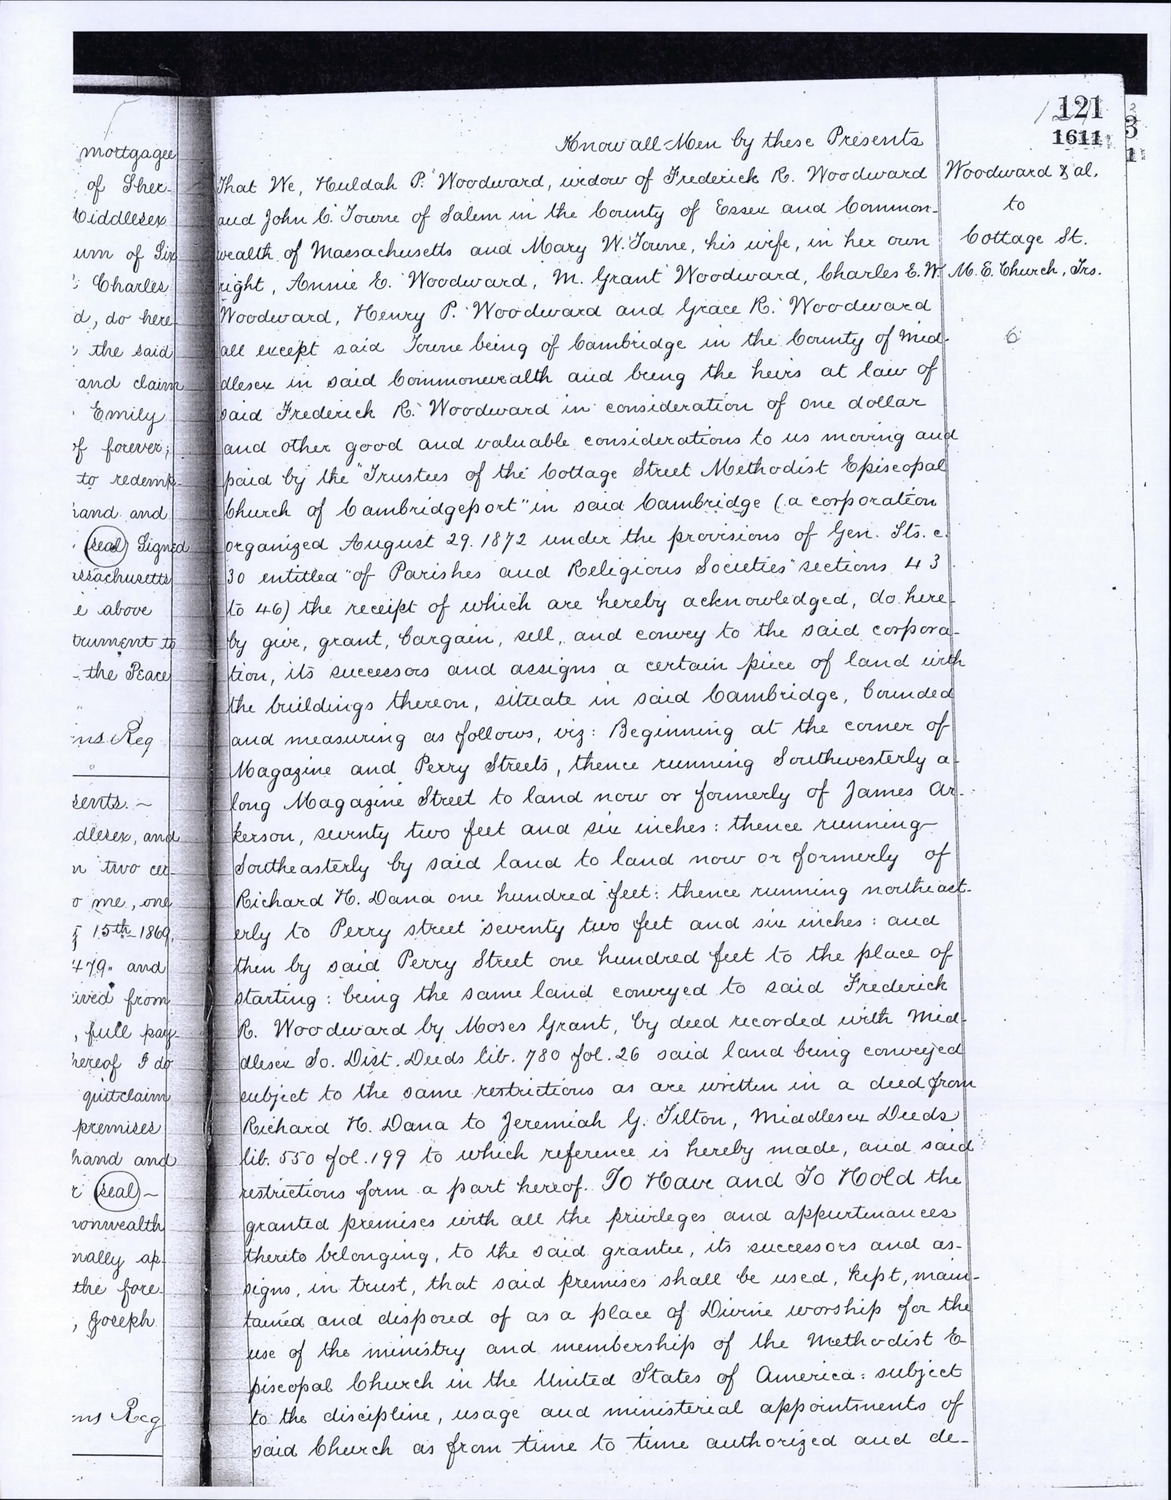 121
1611
3
1
Know all Men by these Presents
That We, Huldah P. Woodward, widow of Frederick R. Woodward
and John C. Towne of Salem in the County of Essex and Common-
wealth of Massachusetts and Mary W. Towne, his wife, in her own
right, Annie E. Woodward, M. Grant Woodward, Charles E. W
Woodward, Henry P. Woodward and Grace R. Woodward
all except said Towne being of Cambridge in the County of Mid-
dlesex in said Commonwealth and being the heirs at law of
said Frederick R. Woodward in consideration of one dollar
and other good and valuable considerations to us moving and
paid by the "Trustees of the Cottage Street Methodist Episcopal
Church of Cambridgeport" in said Cambridge (a corporation
organized August 29. 1872 under the provisions of Gen. Sts. c.
30 entitled "of Parishes and Religious Societies" sections 43
to 46) the receipt of which are hereby acknowledged, do here-
by give, grant, bargain, sell, and convey to the said corpora-
tion, its successors and assigns a certain piece of land with
the buildings thereon, situate in said Cambridge, bounded
and measuring as follows, viz: Beginning at the corner of
Magazine and Perry Streets, thence running Southwesterly a-
long Magazine Street to land now or formerly of James Ar-
kerson, seventy two feet and six inches: thence running
Southeasterly by said land to land now or formerly of
Richard H. Dana one hundred feet: thence running northeast-
erly to Perry street seventy two feet and six inches: and
then by said Perry Street one hundred feet to the place of
starting: being the same land conveyed to said Frederick
R. Woodward by Moses Grant, by deed recorded with Mid-
dlesex So. Dist. Deeds lib. 780 fol. 26 said land being conveyed
subject to the same restrictions as are written in a deed from
Richard H. Dana to Jeremiah G. Tilton, Middlesex Deeds
lib. 550 fol. 199 to which reference is hereby made, and said
restrictions form a part hereof. To Have and To Hold the
granted premises with all the privileges and appurtenances
thereto belonging, to the said grantee, its successors and as-
signs, in trust, that said premises shall be used, kept, main-
tained and disposed of as a place of Divine worship for the
use of the ministry and membership of the Methodist E-
piscopal Church in the United States of America: subject
to the discipline, usage and ministerial appointments of
said Church as from time to time authorized and de-
Woodward & al.
to
Cottage St.
M. E. Church, Trs.
mortgagee
of Sher-
Middlesex
um of Six
Charles
d, do here-
the said
and claim
Emily
of forever;
to redemp-
hand and
(seal) Signed
assachusetts
e above
trument to
the Peace
ns Reg
sents. ~
dlesex, and
n two cer-
o me, one
15th 1869,
479. and
ived from
, full pay-
hereof I do
quitclaim
premises
hand and
r (seal) ~
monwealth
nally ap-
the fore-
, Joseph
ns Reg